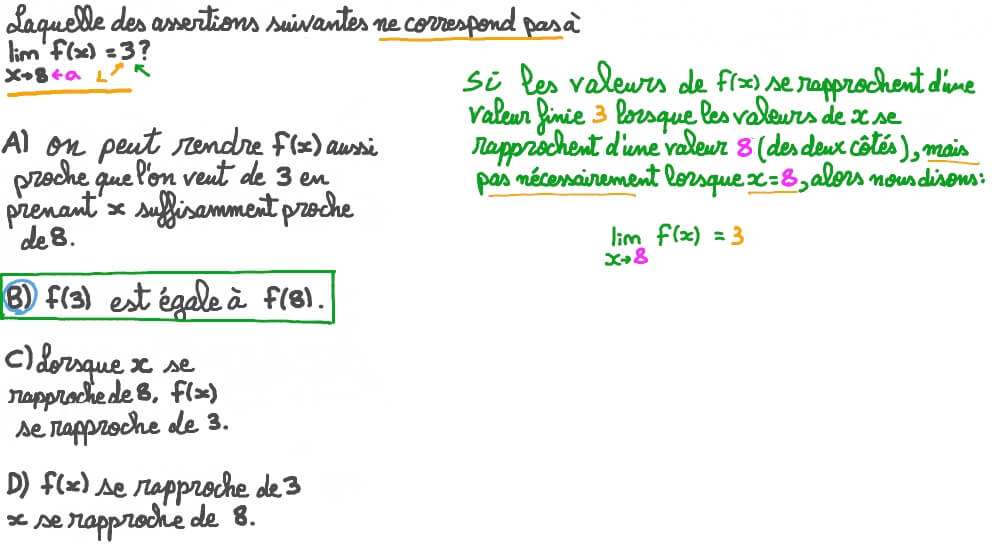 Laquelle des assertions suivantes ne correspond pas à
lim f(x) = 3?
x→8 ←a L
A) on peut rendre f(x) aussi
proche que l'on veut de 3 en
prenant x suffisamment proche
de 8.
B) f(3) est égale à f(8).
C) Lorsque x se
rapproche de 8, f(x)
se rapproche de 3.
D) f(x) se rapproche de 3
x se rapproche de 8.
Si les valeurs de f(x) se rapprochent d'une
valeur finie 3 lorsque les valeurs de x se
rapprochent d'une valeur 8 (des deux côtés), mais
pas nécessairement lorsque x=8, alors nous disons:
lim f(x) = 3
x→8